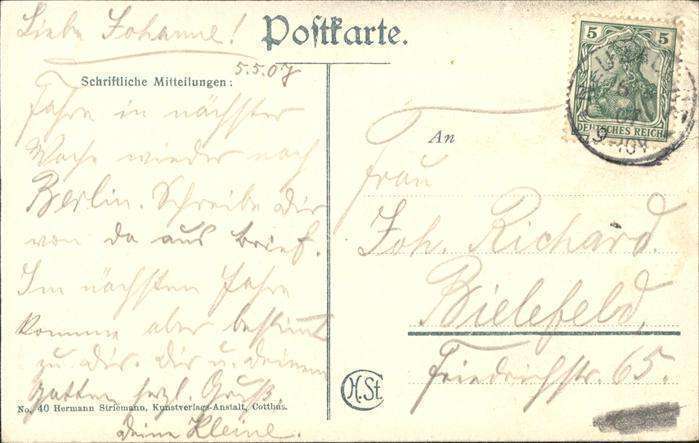 Liebe Johanne!
Postkarte.
5.5.07
Schriftliche Mitteilungen:
Fahre in nächster
Woche wieder nach
Berlin. Schreibe Dir
von da aus Brief.
Im nächsten Jahre
komme aber bestimmt
zu dir. Dir u. deinem
Gatten herzl. Gruß.
Deine Kleine.
No. 40 Hermann Striemann, Kunstverlags-Anstalt, Cottbus.
H.St.
5 5
DEUTSCHES REICH
An
Frau
Joh. Richard.
Bielefeld,
Friedrichstr. 65.